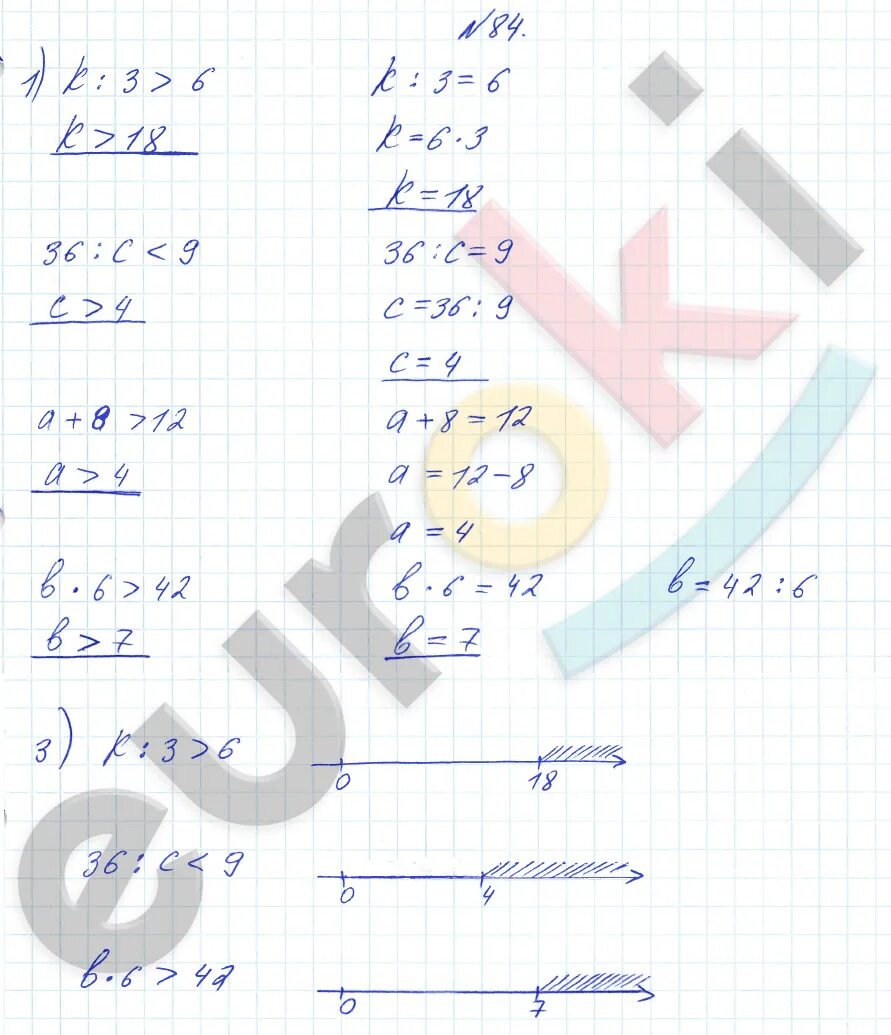 №84.
1) k : 3 > 6    k : 3 = 6
k > 18    k = 6 · 3
k = 18
36 : c < 9    36 : c = 9
c > 4    c = 36 : 9
c = 4
a + 8 > 12    a + 8 = 12
a > 4    a = 12 - 8
a = 4
в · 6 > 42    в · 6 = 42    в = 42 : 6
в > 7    в = 7
3) k : 3 > 6
0    18
36 : c < 9
0    4
в · 6 > 42
0    7
euroki